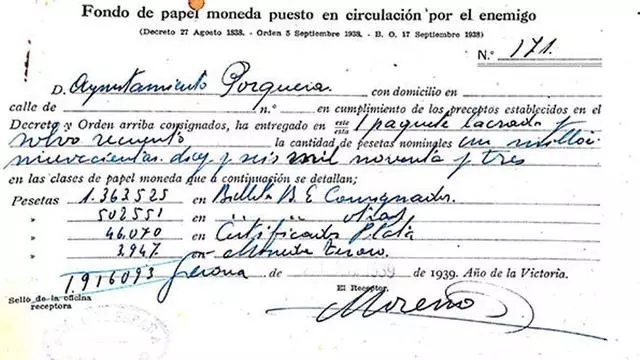 Fondo de papel moneda puesto en circulación por el enemigo
(Decreto 27 Agosto 1938. - Orden 5 Septiembre 1938. - B. O. 17 Septiembre 1938)
N.º 171.
D. Ayuntamiento Porquera con domicilio en
calle de n.º en cumplimiento de los preceptos establecidos en el
Decreto y Orden arriba consignados, ha entregado en este esta 1 paquete lacrado y
salvo recuento la cantidad de pesetas nominales un millon
novecientas diez y seis mil noventa y tres
en las clases de papel moneda que a continuación se detallan;
Pesetas 1.363,525 en Billetes B. E Consignados.
» 502551 en " " otras
» 46.070 en Certificados Plata
» 3.947 en Moneda tesoro.
1,916093 Gerona de 1939. Año de la Victoria.
Sello de la oficina receptora
El Receptor,
Moreno